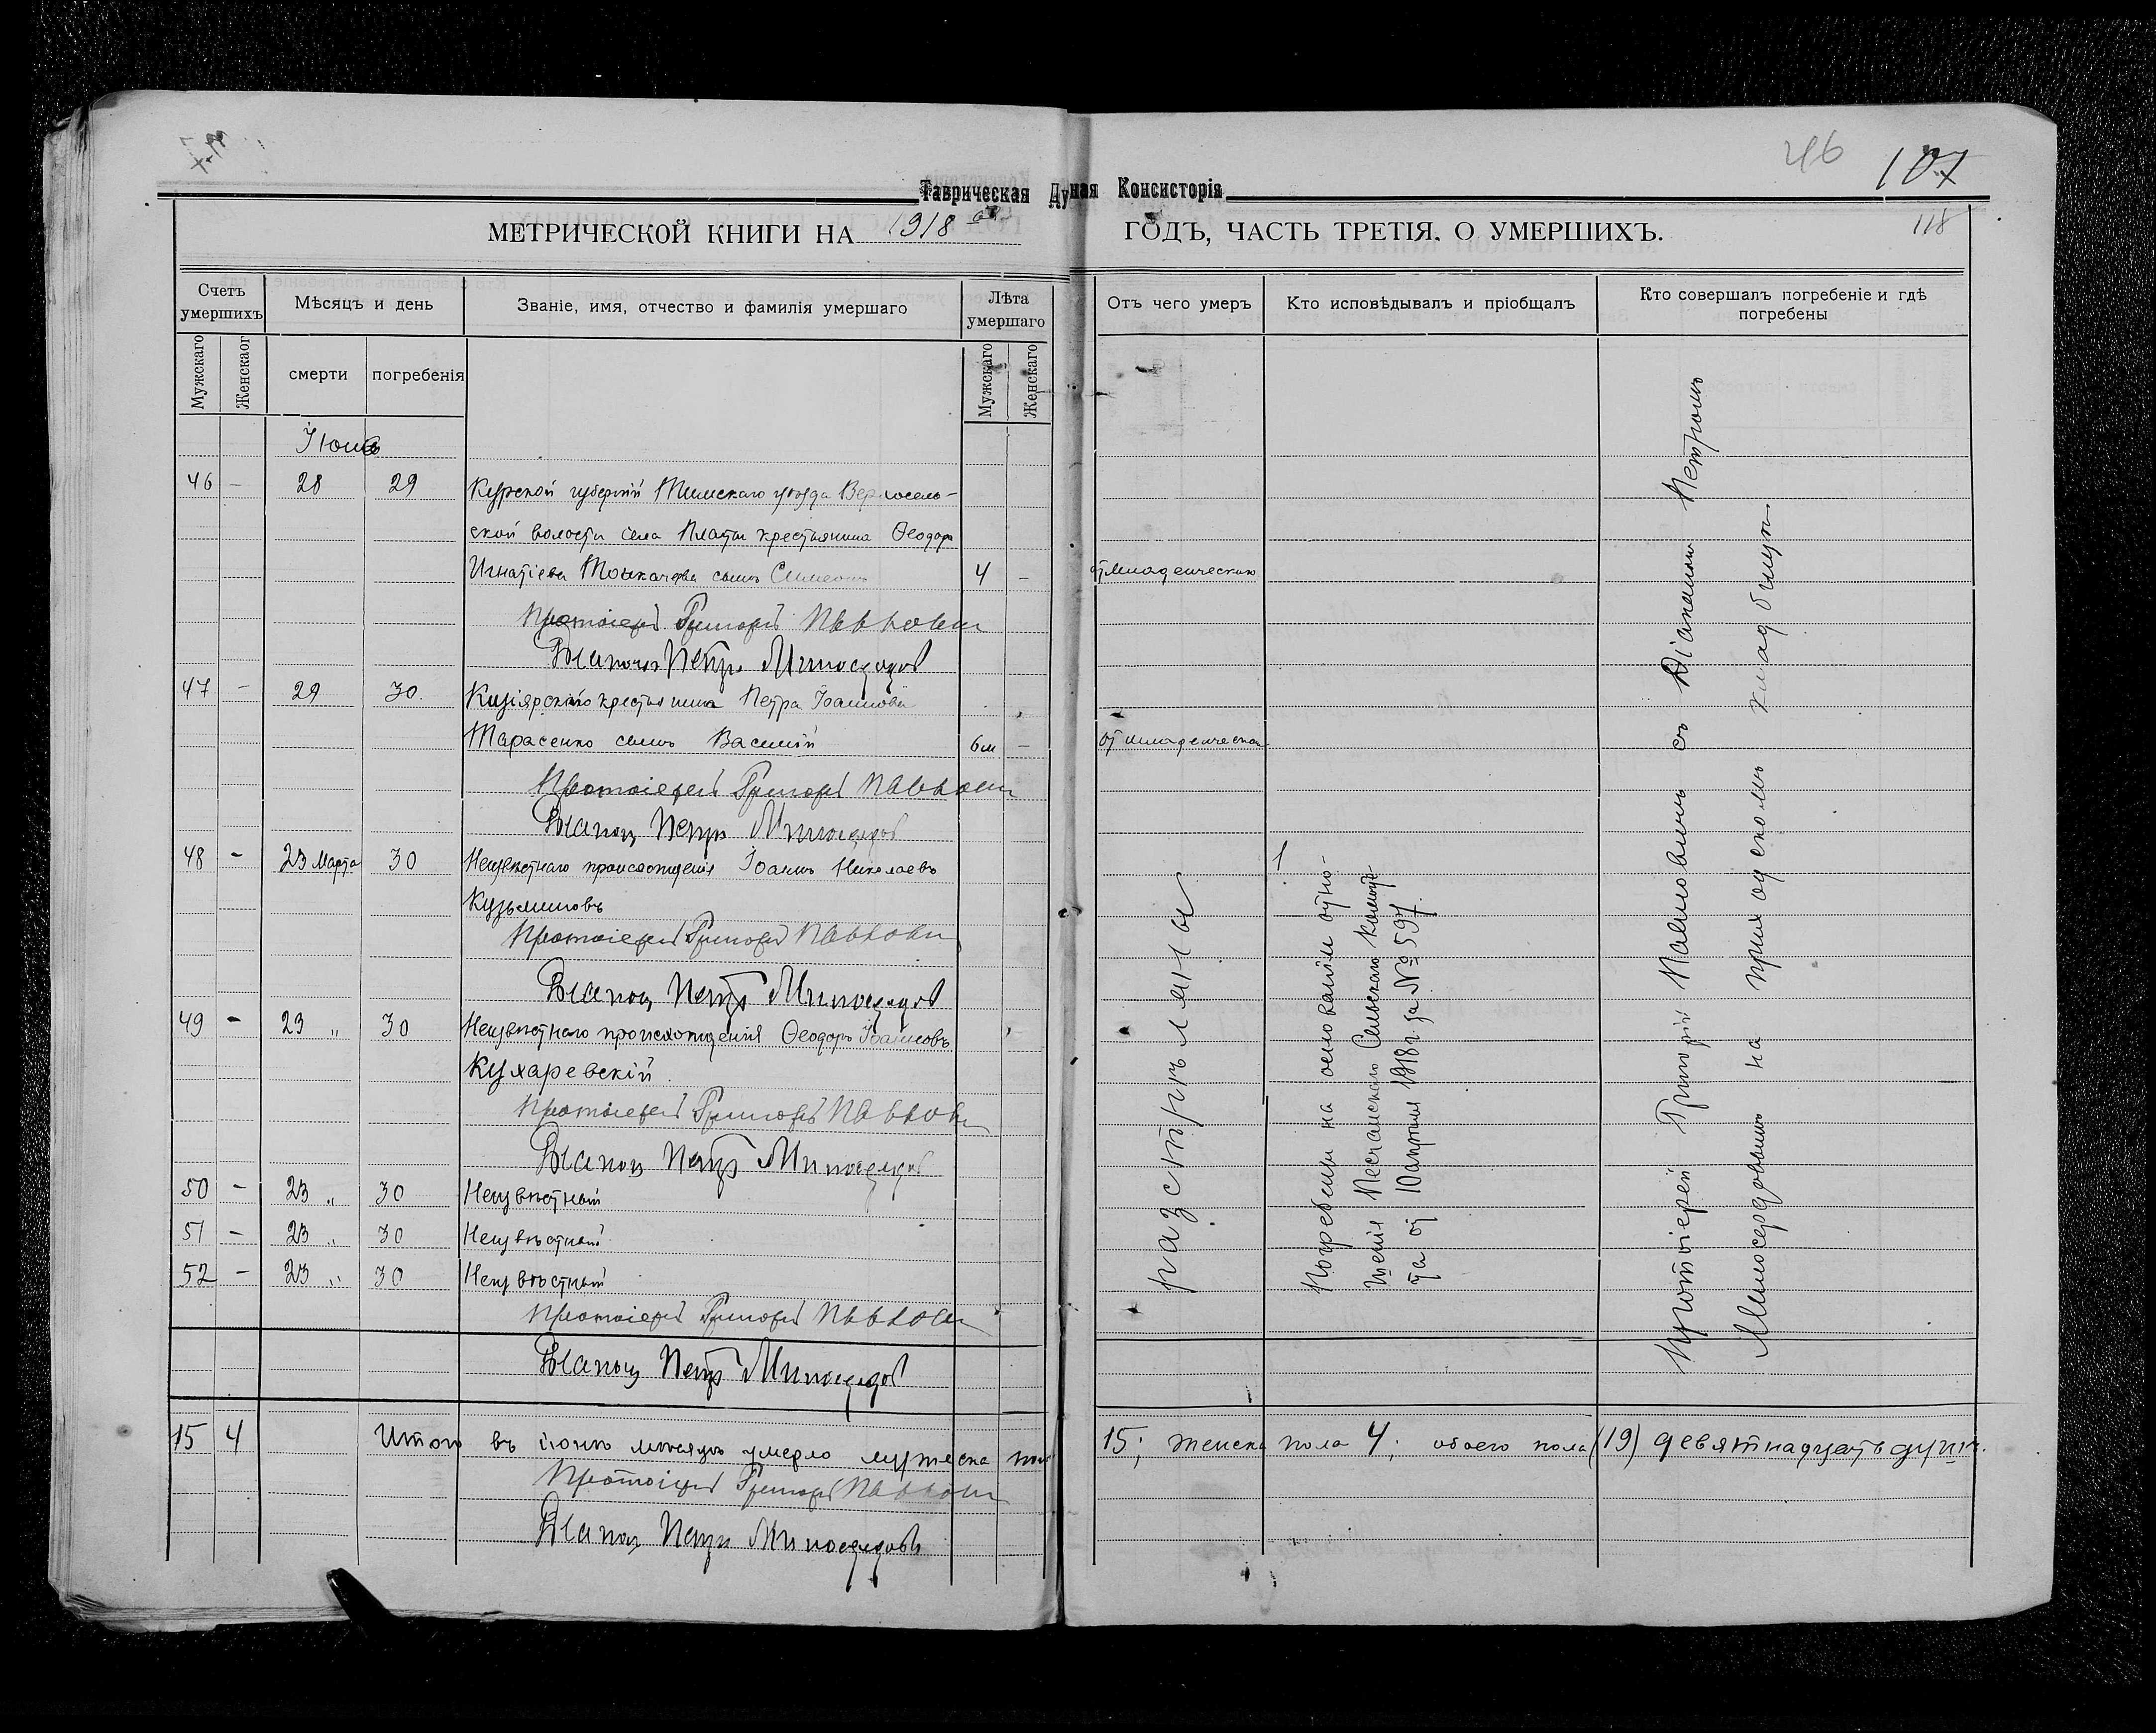 46 107
118
Таврическая Ду ная Консисторія
МЕТРИЧЕСКОЙ КНИГИ НА 1918 ГОДЪ, ЧАСТЬ ТРЕТІЯ. О УМЕРШИХЪ.
Счетъ умершихъ
Мужскаго
Женскаог
Мѣсяцъ и день
смерти
погребенія
Званіе, имя, отчество и фамилія умершаго
Лѣта умершаго
Мужскаго
Женскаго
Отъ чего умеръ
Кто исповѣдывалъ и пріобщалъ
Кто совершалъ погребеніе и гдѣ погребены
Іюнь
46 - 28 29 Курской губерніи Тимскаго уѣзда
ской волости села Платы крестьянина Ѳеодора
Игнатіева сынъ Симеонъ 4 - от младенческих
Протоіерей Григорій
Діаконъ Петръ Милосердовъ
47 - 29 30. крестьянина Петра Іоаннова
Тарасенко сынъ Василій 6м - от младенческа
Протоіерей Григорій
Діаконъ Петръ Милосердовъ
48 - 23 Марта 30 Неизвѣстнаго происхожденія Іоаннъ Николаевъ
Кузьминовъ
Протоіерей Григорій
Діаконъ Петръ Милосердовъ
49 - 23 „ 30 Неизвѣстнаго происхожденія Ѳеодоръ Іоанновъ
Кухаревскій
Протоіерей Григорій
Діаконъ Петръ Милосердовъ
50 - 23 „ 30 Неизвѣстный
51 - 23 „ 30 Неизвѣстный
52 - 23 „ 30 Неизвѣстный
Протоіерей Григорій
Діаконъ Петръ Милосердовъ
разстрѣляны
Погребены на основаніи отно-
шенія Песчанскаго Сельскаго Комите-
та от 10 апрѣля 1918 г. за № 597.
Протоіерей Григорій съ Діакономъ Петромъ
Милосердовымъ на приходскомъ кладбищѣ
15 4 Итого въ іюнѣ мѣсяцѣ умерло мужеска пола 15; женска пола 4; обоего пола (19) девятнадцать душъ.
Протоіерей Григорій
Діаконъ Петръ Милосердовъ